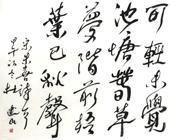 可輕未覺
池塘萅草
夢階前梧
葉已秋聲
宋朱熹詩